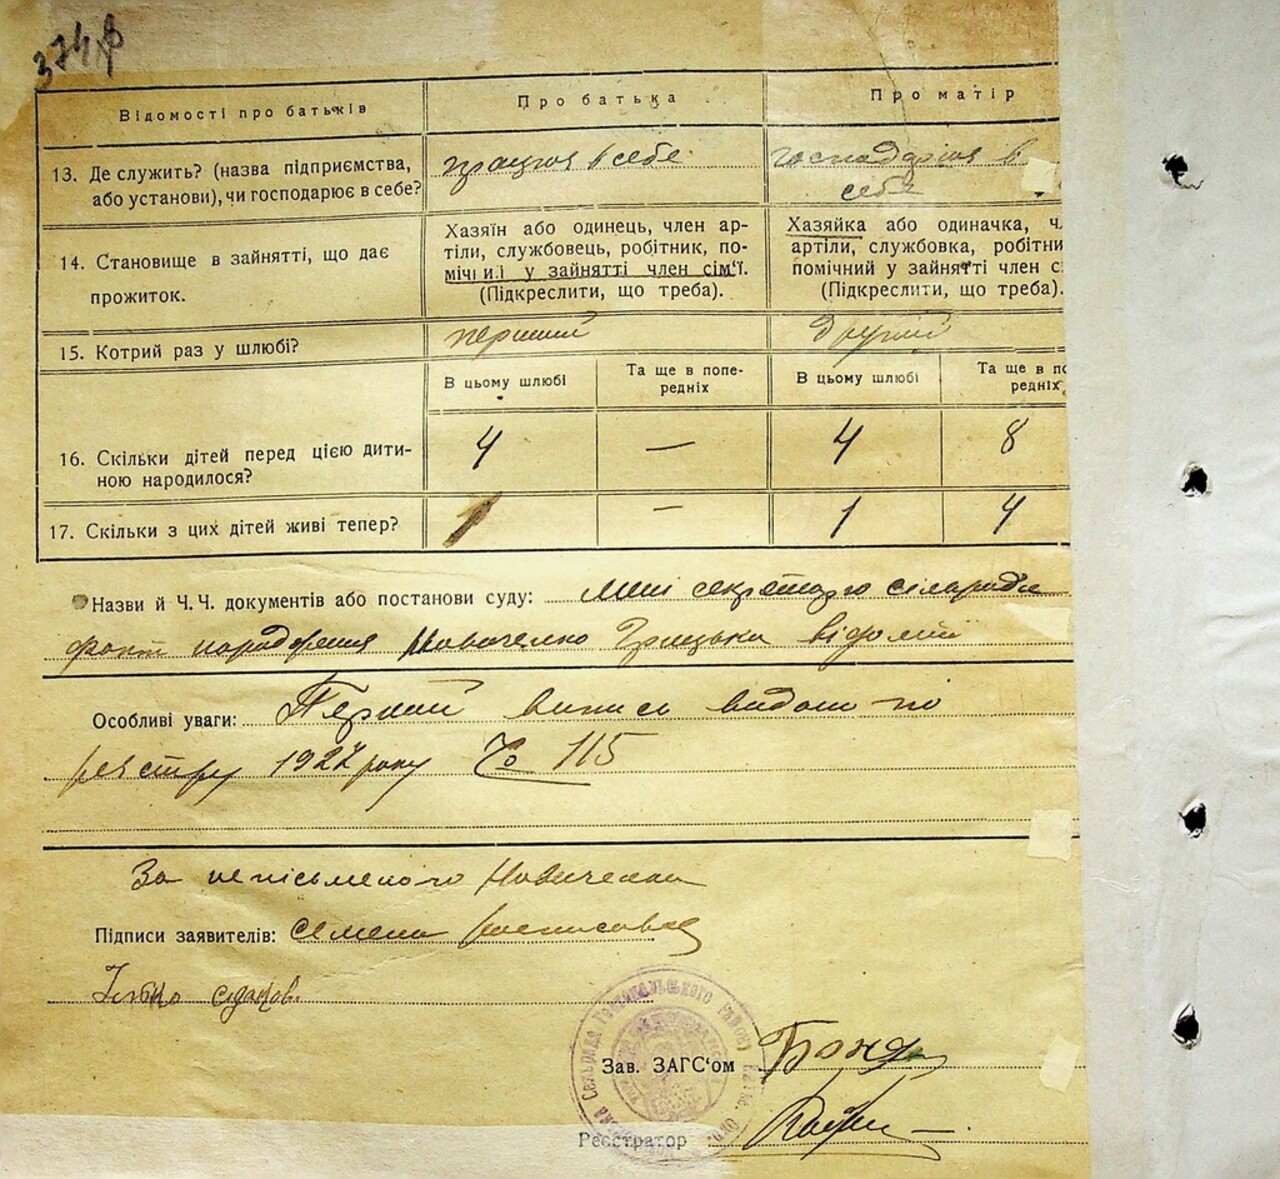 Відомості про батьків
Про батька
Про матір
13. Де служить? (назва підприємства, або установи), чи господарює в себе?
працює в себе
господарює в
себе
14. Становище в зайнятті, що дає
прожиток.
Хазяїн або одинець, член ар-
тіли, службовець, робітник, по-
мічний у зайнятті член сім'ї.
(Підкреслити, що треба).
Хазяйка або одиначка, ч
артіли, службовка, робітни
помічний у зайнятті член с
(Підкреслити, що треба).
15. Котрий раз у шлюбі?
перший
другий
В цьому шлюбі
Та ще в попе-
редніх
В цьому шлюбі
Та ще в по
редніх
16. Скільки дітей перед цією дити-
ною народилося?
4
—
4
8
17. Скільки з цих дітей живі тепер?
1
—
1
4
Назви й Ч.Ч. документів або постанови суду: Мені секретарю сільради
факт народження Новиченко Грицька відомий
Особливі уваги: Перший випис видано по
реєстру 1927 року № 115
За неписьменого Новиченка
Підписи заявителів: Семена росписався
Зав. ЗАГС'ом
Реєстратор